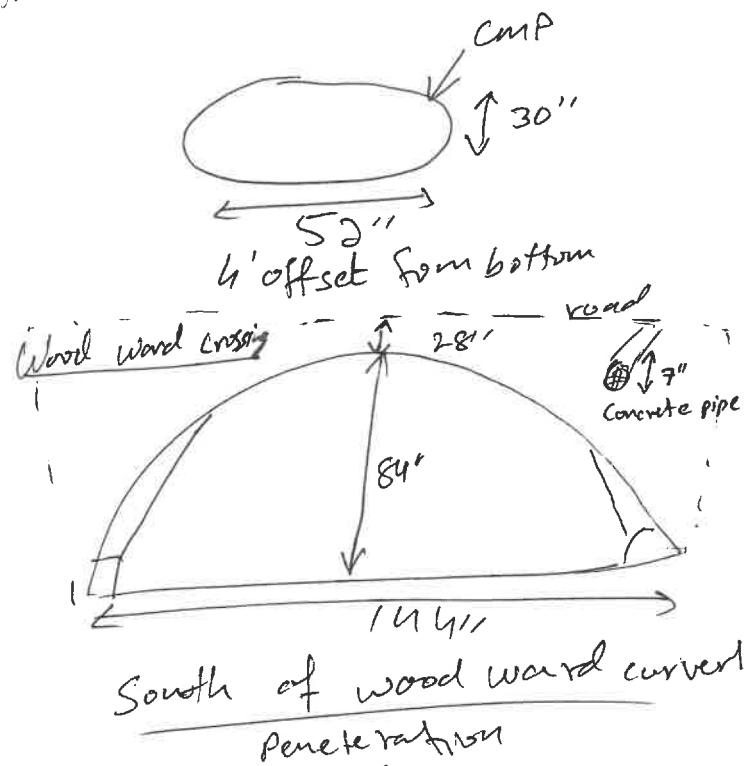 CMP
30"
52"
4' offset from bottom
road
Wood ward crossing
28"
7"
Concrete pipe
84"
144"
South of wood ward curvert
Peneteration